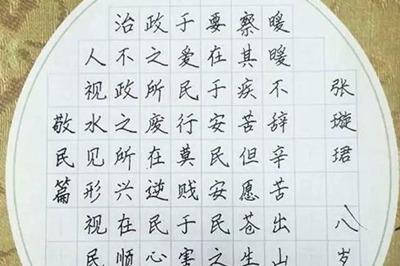 暖暖不辞辛苦出山
察其疾苦但愿苍生
要在于安民安民之
于爱民行莫贱于害
政之所废在逆民心
治不政之所兴在顺
人视水见形视民
敬民篇
张璇珺 八岁